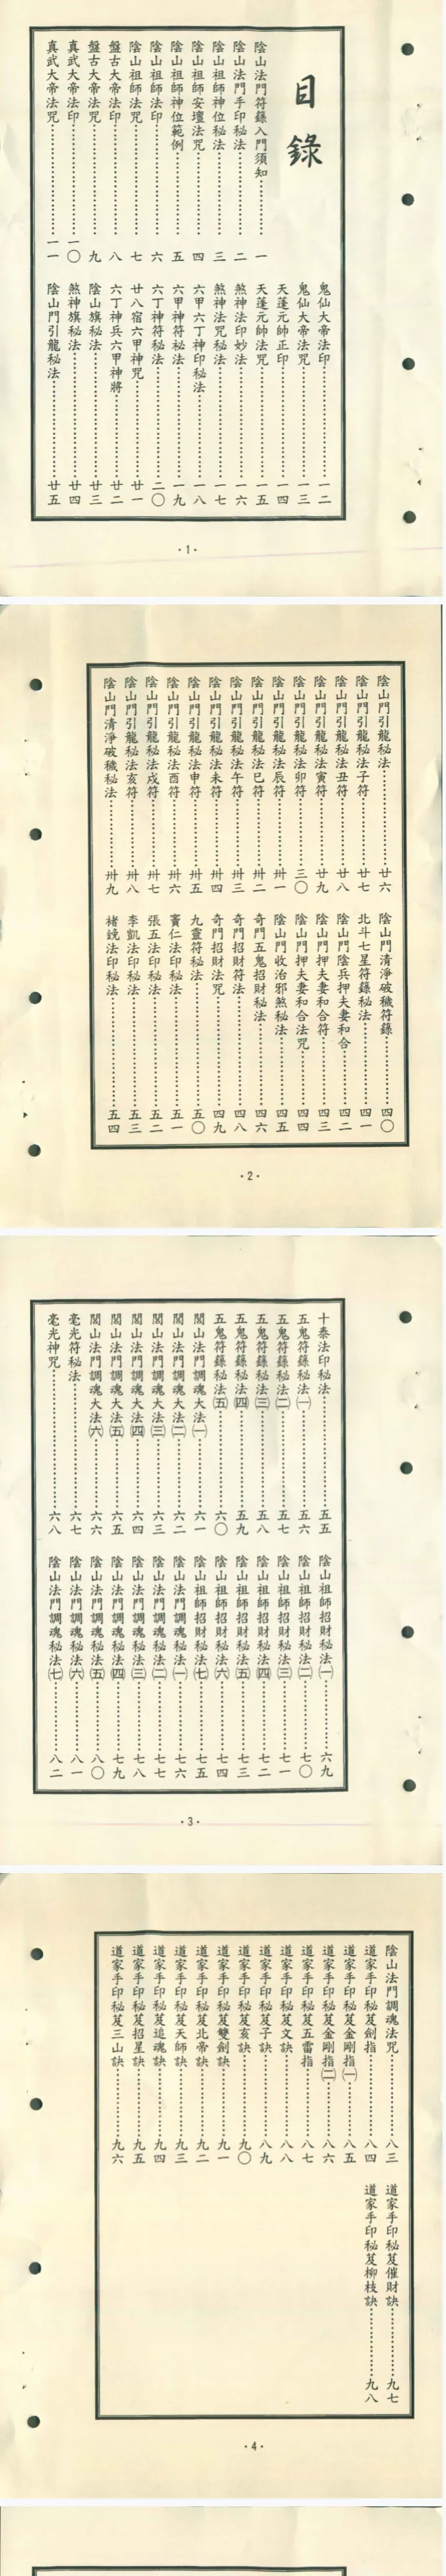 目錄
陰山法門符籙入門須知………一
陰山法門手印秘法………二
陰山祖師神位秘法………三
陰山祖師安壇法咒………四
陰山祖師神位範例………五
陰山祖師法印………六
陰山祖師法咒………七
盤古大帝法印………八
盤古大帝法咒………九
真武大帝法印………一〇
真武大帝法咒………一一
鬼仙大帝法印………一二
鬼仙大帝法咒………一三
天蓬元帥正印………一四
天蓬元帥法咒………一五
煞神法印妙法………一六
煞神法咒秘法………一七
六甲六丁神印秘法………一八
六甲神符秘法………一九
六丁神符秘法………二〇
廿八宿六甲神咒………廿一
六丁神兵六甲神將………廿二
陰山旗秘法………廿三
煞神旗秘法………廿四
陰山門引龍秘法………廿五
·1·
陰山門引龍秘法………廿六
陰山門引龍秘法子符………廿七
陰山門引龍秘法丑符………廿八
陰山門引龍秘法寅符………廿九
陰山門引龍秘法卯符………三〇
陰山門引龍秘法辰符………卅一
陰山門引龍秘法巳符………卅二
陰山門引龍秘法午符………卅三
陰山門引龍秘法未符………卅四
陰山門引龍秘法申符………卅五
陰山門引龍秘法酉符………卅六
陰山門引龍秘法戌符………卅七
陰山門引龍秘法亥符………卅八
陰山門清淨破穢秘法………卅九
陰山門清淨破穢符籙………四〇
北斗七星符籙秘法………四一
陰山門陰兵押夫妻和合………四二
陰山門押夫妻和合符………四三
陰山門押夫妻和合法咒………四四
陰山門收治邪煞秘法………四五
奇門五鬼招財秘法………四六
奇門招財符法………四八
奇門招財法咒………四九
九靈符秘法………五〇
竇仁法印秘法………五一
張五法印秘法………五二
李凱法印秘法………五三
褚鋔法印秘法………五四
·2·
十泰法印秘法………五五
五鬼符籙秘法㈠………五六
五鬼符籙秘法㈡………五七
五鬼符籙秘法㈢………五八
五鬼符籙秘法㈣………五九
五鬼符籙秘法㈤………六〇
閭山法門調魂大法㈠………六一
閭山法門調魂大法㈡………六二
閭山法門調魂大法㈢………六三
閭山法門調魂大法㈣………六四
閭山法門調魂大法㈤………六五
閭山法門調魂大法㈥………六六
毫光符秘法………六七
毫光神咒………六八
陰山祖師招財秘法㈠………六九
陰山祖師招財秘法㈡………七〇
陰山祖師招財秘法㈢………七一
陰山祖師招財秘法㈣………七二
陰山祖師招財秘法㈤………七三
陰山祖師招財秘法㈥………七四
陰山祖師招財秘法㈦………七五
陰山法門調魂秘法㈠………七六
陰山法門調魂秘法㈡………七七
陰山法門調魂秘法㈢………七八
陰山法門調魂秘法㈣………七九
陰山法門調魂秘法㈤………八〇
陰山法門調魂秘法㈥………八一
陰山法門調魂秘法㈦………八二
·3·
陰山法門調魂法咒………八三
道家手印秘笈劍指………八四
道家手印秘笈金剛指㈠………八五
道家手印秘笈金剛指㈡………八六
道家手印秘笈五雷指………八七
道家手印秘笈文訣………八八
道家手印秘笈子訣………八九
道家手印秘笈亥訣………九〇
道家手印秘笈雙劍訣………九一
道家手印秘笈北帝訣………九二
道家手印秘笈天師訣………九三
道家手印秘笈追魂訣………九四
道家手印秘笈招星訣………九五
道家手印秘笈三山訣………九六
道家手印秘笈催財訣………九七
道家手印秘笈柳枝訣………九八
·4·